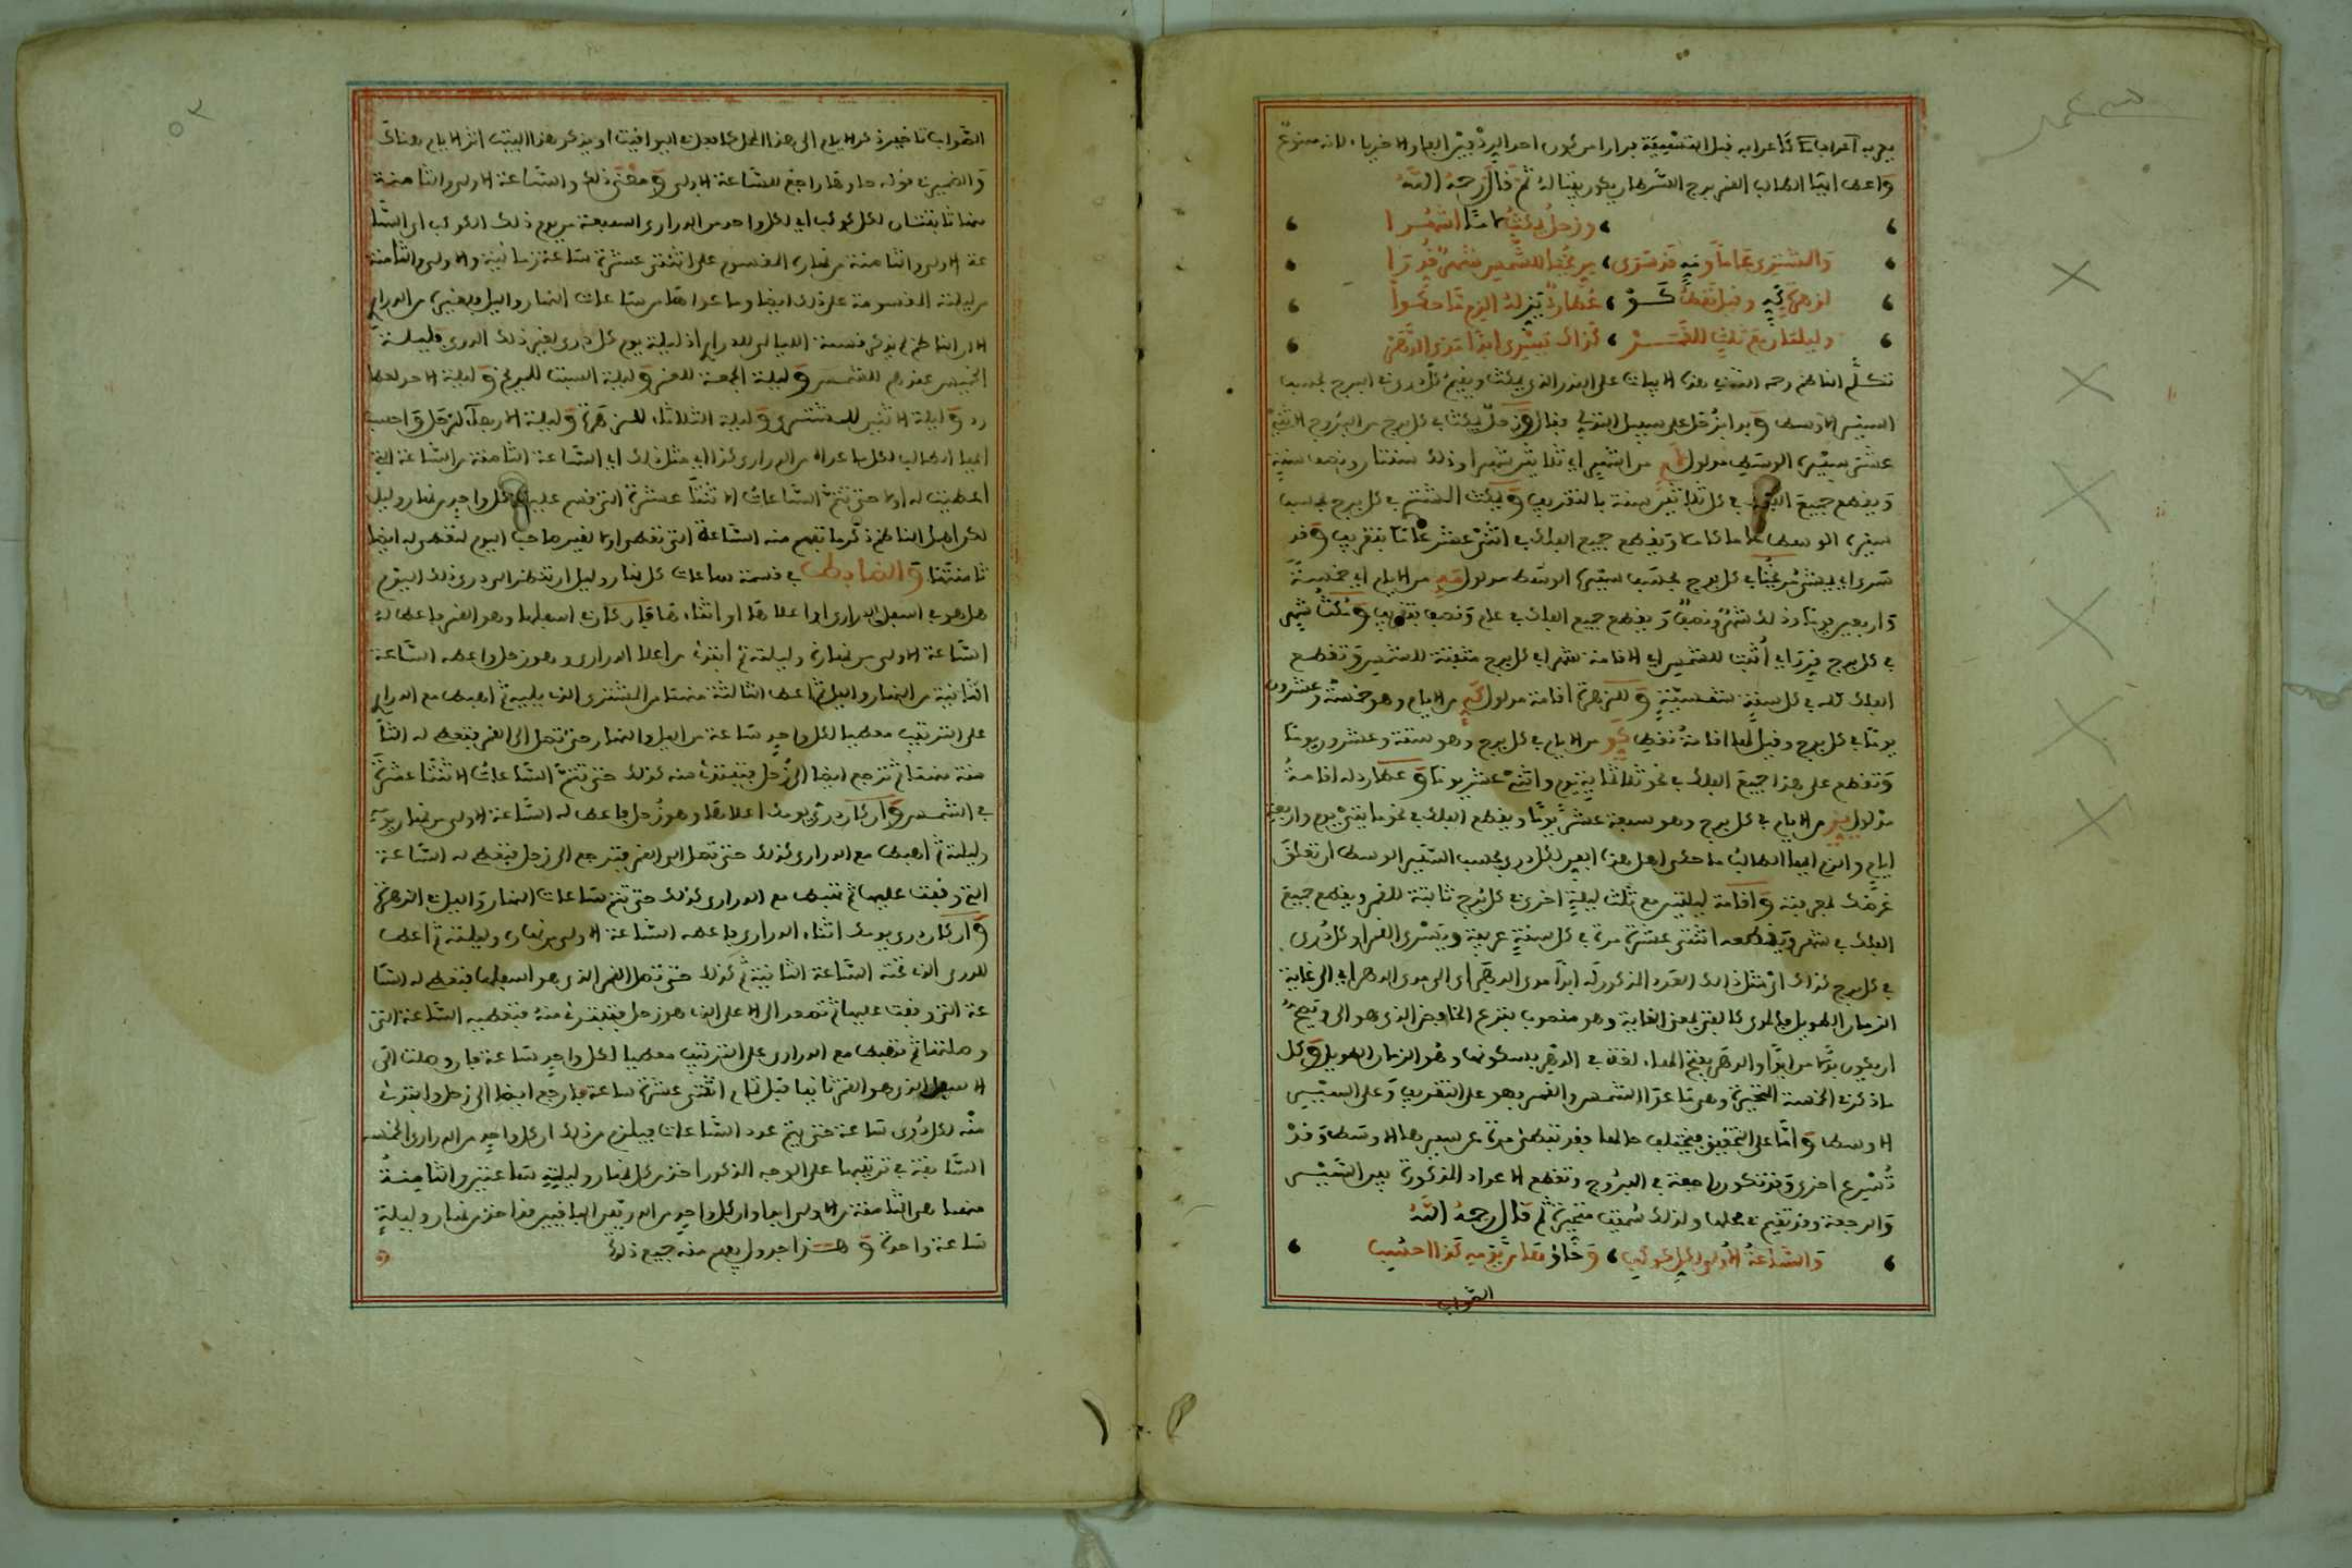 وأعط أيها الطالب القمر برج السرطان يكون بيتا له ثم قال رحمه الله
وزحل يمكث لامـا أشهرا
والمشتري عاما وفيه قد سرى، مريخها للشمس شهر قدرا
لزهرة كه وقيل تقطن كـو، عطارد يز له الزم ما حكوا
وليلتان مع ثلث للقمر، كذاك تسري أبدا مدى الدهر
تكلم الناظم رحمه الله في هذه الأبيات على القدر الذي يمكث ويقيم كل دري في البرج بحسب
السير الأوسط وبدأ بزحل على سبيل التدلي فقال وزحل يمكث أي في كل برج من البروج الاثني
عشر بسيره الوسطي مدلول لام من أشهر أي ثلاثين شهرا وذلك سنتان ونصف سنة
ويقطع جميع الفلك في كل ثلاثين سنة بالتقريب ويمكث المشتري في كل برج بحسب
سيره الوسط عاما كاملا ويقطع جميع الفلك في اثني عشر عاما بتقريب وقد
سرى أي يمشي مريخها في كل برج بحسب سيره الوسط مدلول مه من الأيام أي خمسة
وأربعين يوما وذلك شهر ونصف ويقطع جميع الفلك في عام ونصف بتقريب ومكث شهر
في كل برج قدر أي أثبت للشمس أي إقامة شهر أي كل برج مثبتة للشمس وتقطع
الفلك كله في كل سنة شمسية وللزهرة إقامة مدلول كه من الأيام وهو خمسة وعشرون
يوما في كل برج وقيل لها إقامة تقطن كو من الأيام في كل برج وهو ستة وعشرون يوما
وتقطع على هذا جميع الفلك في نحو ثلاثمائة يوم واثني عشر يوما وعطارد له إقامة
مدلول يز من الأيام في كل برج وهو سبعة عشر يوما ويقطع الفلك في نحو مايتي يوم وأربعة
أيام والزم أيها الطالب ما حكى أهل هذا الفن لكل دري بحسب السير الوسط إن تعلق
غرضك بمعرفته وإقامة ليلتين مع ثلث ليلة أخرى في كل برج ثابتة للقمر ويقطع جميع
الفلك في شهر ويقطعه اثنتي عشرة مرة في كل سنة عربية ويسري القمر أو كل دري
في كل برج كذاك أي مثل ذلك القدر المذكور له أبدا مدى الدهر أي إلى مدى الدهر أي إلى غاية
الزمان الطويل فالمدى كالفتى بمعنى الغاية وهو منصوب بنزع الخافض الذي هو إلى ويصح
أن يكون بدلا من أبدا والدهر بفتح الهاء لغة في الدهر بسكونها وهو الزمان الطويل وكل
ما ذكر في الخمسة المتحيرة وهي ما عدا الشمس والقمر فهو على التقريب وعلى السير
الأوسط وأما على التحقيق فيختلف حالها فقد تبطئ مرة عن سيرها الأوسط وقد
تسرع أخرى وقد تكون راجعة في البروج وتقطع الأعداد المذكورة بين السير
والرجعة وقد تقيم في محلها ولذلك سميت متحيرة ثم قال رحمه الله
والساعة الأولى لكل كوكب، وحاؤها من يومه كذا احسب
الصواب
الصواب تأخير ذكر الأيام إلى هذا المحل كما فعل في اليواقيت أو يذكر هذا البيت إثر الأيام هناك
والضمير في قوله حاؤها راجع للساعة الأولى ومعنى ذلك والساعة الأولى والثامنة
منها ثابتتان لكل كوكب أي لكل واحد من الدراري السبعة من يوم ذلك الكوكب أي السا
عة الأولى والثامنة من نهاره المقسوم على اثنتي عشرة ساعة زمانية والأولى والثامنة
من ليلته المقسومة على ذلك أيضا وما عداها من ساعات النهار والليل فلغيره من الدراري
إلا أن الناظم لم يذكر قسمة الليالي للدراري إذ ليلة يوم كل دري لغير ذلك الدري فليلة
الخميس عندهم للشمس وليلة الجمعة للقمر وليلة السبت للمريخ وليلة الأحد لعطا
رد وليلة الاثنين للمشتري وليلة الثلاثاء للزهرة وليلة الأربعاء لزحل واحسب
أيها الطالب لكل ما عداه من الدراري كذا أي مثل ذلك أي الساعة الثامنة من الساعة التي
أعطيت له أولا حتى تتم الساعات الاثنتا عشرة التي قسم عليها كل واحد من نهار وليل
لكن أهمل الناظم ذكر ما تفهم منه الساعة التي تعطى أولا لغير صاحب اليوم لتعطى له أيضا
ثامنتها والضابط في قسمة ساعات كل نهار وليل أن تنظر إلى دري ذلك اليوم
هل هو في أسفل الدراري أو أعلاها أو أثناءها فإن كان أسفلها وهو القمر فأعط له
الساعة الأولى من نهاره وليلته ثم ابتدئ من أعلا الدراري وهو زحل وأعطه الساعة
الثانية من النهار والليل ثم أعط الثالثة منهما من المشتري الذي يليه ثم اهبط مع الدراري
على الترتيب معطيا لكل واحد ساعة من الليل والنهار حتى تصل إلى القمر فتعطي له الثا
منة منهما ثم ترجع أيضا إلى زحل فتبتدئ منه كذلك حتى تتم الساعات الاثنتا عشرة
في الشمس وإن كان دري يومك أعلاها وهو زحل فأعط له الساعة الأولى من نهار يومه
وليلته ثم اهبط مع الدراري كذلك حتى تصل إلى القمر فترجع إلى زحل فتعطي له الساعة
التي وقفت عليها ثم تهبط مع الدراري كذلك حتى تتم ساعات النهار والليل في الزهرة
وإن كان دري يومك أثناء الدراري فأعطه الساعة الأولى من نهاره وليلته ثم أعط
للدري الذي تحته الساعة الثانية ثم كذلك حتى تصل القمر الذي هو أسفلها فتعطي له السا
عة التي وقفت عليها ثم تصعد إلى الأعلى الذي هو زحل فتبتدئ منه فتعطيه الساعة التي
وصلتها ثم تهبط مع الدراري على الترتيب معطيا لكل واحد ساعة فإن وصلت إلى
الأسفل الذي هو القمر ثانيا قبل تمام اثنتي عشرة ساعة فارجع أيضا إلى زحل وابتدئ
منه لكل دري ساعة حتى يتم عدد الساعات فيلزم من ذلك أن كل واحد من الدراري الخمسة
السابقة في ترتيبها على الوجه المذكور أخذ من كل نهار وليلة ساعتين والثامنة
منهما هي الثامنة من الأولى أيضا وأن كل واحد من الدريين الباقيين قد أخذ من نهار وليلة
ساعة واحدة وهذا جدول يعلم منه جميع ذلك